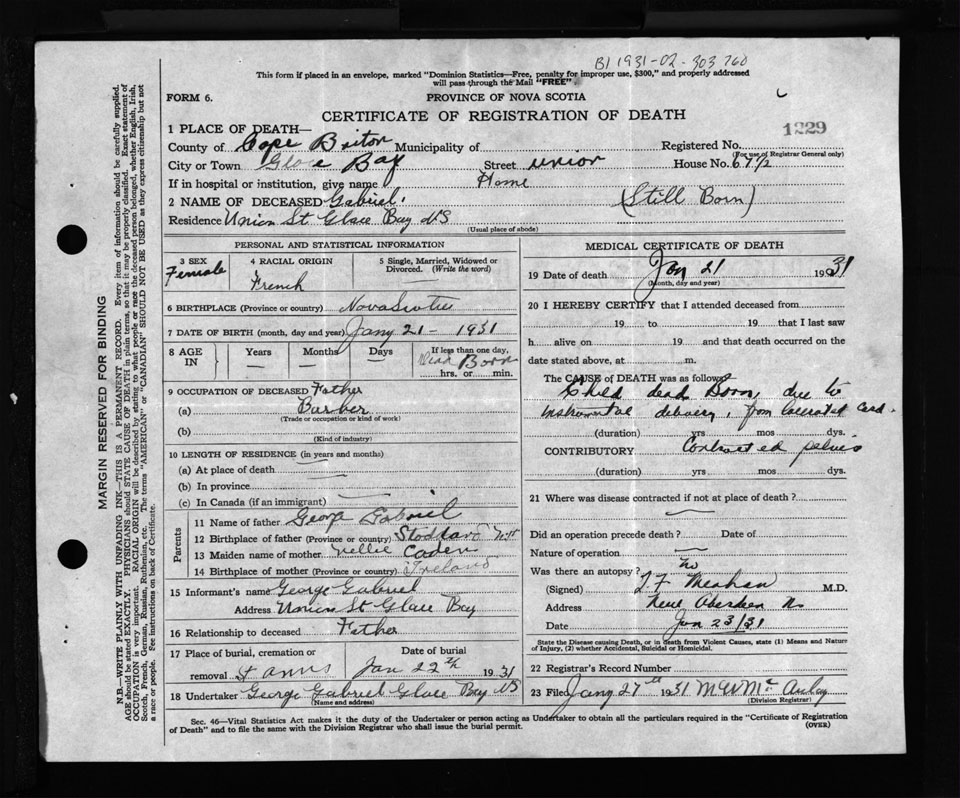 B1 1931-02-303760
This form if placed in an envelope, marked "Dominion Statistics—Free, penalty for improper use, $300," and properly addressed
will pass through the Mail "FREE".
FORM 6.
PROVINCE OF NOVA SCOTIA
CERTIFICATE OF REGISTRATION OF DEATH
1229
1 PLACE OF DEATH—
County of Cape Briton Municipality of Registered No.
(For use of Registrar General only)
City or Town Glace Bay Street Union House No. 67½
If in hospital or institution, give name Home
2 NAME OF DECEASED Gabriel. (Still Born)
Residence Union St Glace Bay NS
(Usual place of abode)
PERSONAL AND STATISTICAL INFORMATION
3 SEX Female
4 RACIAL ORIGIN French
5 Single, Married, Widowed or Divorced. (Write the word) —
6 BIRTHPLACE (Province or country) Nova Scotia
7 DATE OF BIRTH (month, day and year) Jany 21 - 1931
8 AGE IN Years — Months — Days — If less than one day, Dead Born hrs. or min.
9 OCCUPATION OF DECEASED Father
(a) Barber
(Trade or occupation or kind of work)
(b)
(Kind of industry)
10 LENGTH OF RESIDENCE (in years and months)
(a) At place of death —
(b) In province —
(c) In Canada (if an immigrant) —
Parents
11 Name of father George Gabriel
12 Birthplace of father (Province or country) Stoddard NH
13 Maiden name of mother Nellie Caden
14 Birthplace of mother (Province or country) Ireland
15 Informant's name George Gabriel
Address Union St Glace Bay
16 Relationship to deceased Father
17 Place of burial, cremation or removal St Anns
Date of burial Jan 22th 1931
18 Undertaker George Gabriel Glace Bay NS
(Name and address)
MEDICAL CERTIFICATE OF DEATH
19 Date of death Jan 21 1931
(Month, day and year)
20 I HEREBY CERTIFY that I attended deceased from
19 to 19 that I last saw
h alive on 19 and that death occurred on the
date stated above, at m.
The CAUSE OF DEATH was as follows:
Child dead Born, due to
instrumental delivery, from lacerated Cord.
(duration) yrs mos dys.
CONTRIBUTORY Contracted pelvis
(duration) yrs mos dys.
21 Where was disease contracted if not at place of death?
Did an operation precede death? Date of
Nature of operation —
Was there an autopsy? no
(Signed) J. F. Meahan M.D.
Address New Aberdeen NS
Date Jan 23/31
State the Disease causing Death, or in death from Violent Causes, state (1) Means and Nature
of Injury, (2) whether Accidental, Suicidal or Homicidal.
22 Registrar's Record Number
23 Filed Jany 27th 1931 M W McAulay
(Division Registrar)
Sec. 46—Vital Statistics Act makes it the duty of the Undertaker or person acting as Undertaker to obtain all the particulars required in the "Certificate of Registration
of Death" and to file the same with the Division Registrar who shall issue the burial permit.
(OVER)
MARGIN RESERVED FOR BINDING
N.B.—WRITE PLAINLY WITH UNFADING INK—THIS IS A PERMANENT RECORD. Every item of information should be carefully supplied.
AGE should be stated EXACTLY. PHYSICIANS should STATE CAUSE OF DEATH in plain terms, so that it may be properly classified. Exact statement of
OCCUPATION is very important. RACIAL ORIGIN will be described by stating to what people or race the deceased person belonged, whether English, Irish,
Scotch, French, German, Russian, Ruthenian, etc. The terms "AMERICAN" or "CANADIAN" SHOULD NOT BE USED as they express citizenship but not
a race or people. See instructions on back of Certificate.